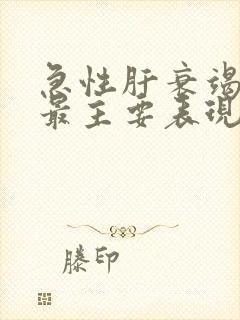 急性肝衰竭
最主要表现
滕印